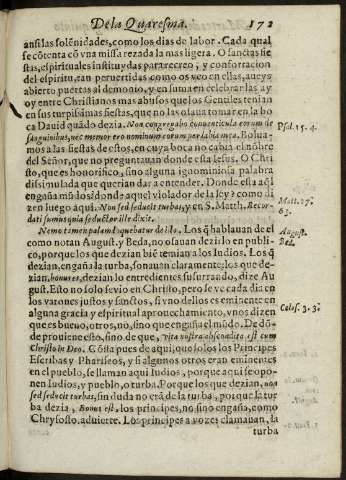 De la Quaresma. 172
ansi las solẽnidades, como los dias de labor. Cada qual
se cõtenta cõ vna missa rezada la mas ligera. O sanctas fie
stas, espirituales instituydas para recreo, y confortacion
del espiritu, tan peruertidas como os veo en ellas, aueys
abierto puertas al demonio, y en suma en celebrar las ay
oy entre Christianos mas abusos que los Gentiles tenian
en sus turpibimas fiestas, que no las osaua tomar en la bo
ca Dauid quãdo dezia. Non congregabo conuenticula eorum de
sanguinibus, nec memor ero nominum eorum per labia mea. Bolua-
mos a las fiestas de estos, en cuya boca no cabia el nõbre
del Señor, que no preguntauan donde esta Iesus. O Chri
sto, que es honorifico, sino alguna ignominiosa palabra
dissimulada que querian dar a entender. Donde esta aq̃l
engaña mũdos? donde aquel violador de la ley? como di
zen luego aqui. Non sed seducit turbas, y en S. Matth. Recor-
dati sumus quia seductor ille dixit.
Nemo tamen palam loquebatur de illo. Los q̃ hablauan de el
como notan August. y Beda, no osauan dezirlo en publi-
co, porque los que dezian biẽ temian a los Iudios. Los q̃
dezian, engaña la turba, sonauan claramente; los que de-
zian, bonus es, dezianlo entredientes susurrando, dize Au-
gust. Esto no solo siruio en Christo, pero se ve cada dia en
los varones justos y sanctos, si vno dellos es eminente en
alguna gracia y espiritual aprouechamiento, vnos dizen
que es bueno, otros, no, sino que engaña el mũdo. De dõ-
de prouiene esto, sino de que, vita vestra abscondita est cum
Christo in Deo. Cõsta pues de aqui, que solos los Principes
Escribas y Phariseos, y si algunos otros eran eminentes
en el pueblo, se llaman aqui Iudios, porque aqui se opo-
nen Iudios, y pueblo, o turba. Porque los que dezian, non
sed seducit turbas, sin duda no erã de la turba, porque la tur
ba dezia, Bonus est, los principes, no sino engaña, como
Chrysosto. aduierte. Los principes a vozes clamauan, la
turba
Psal. 15. 4.
Matt. 27.
63.
August.
Bed.
Colos. 3. 3.